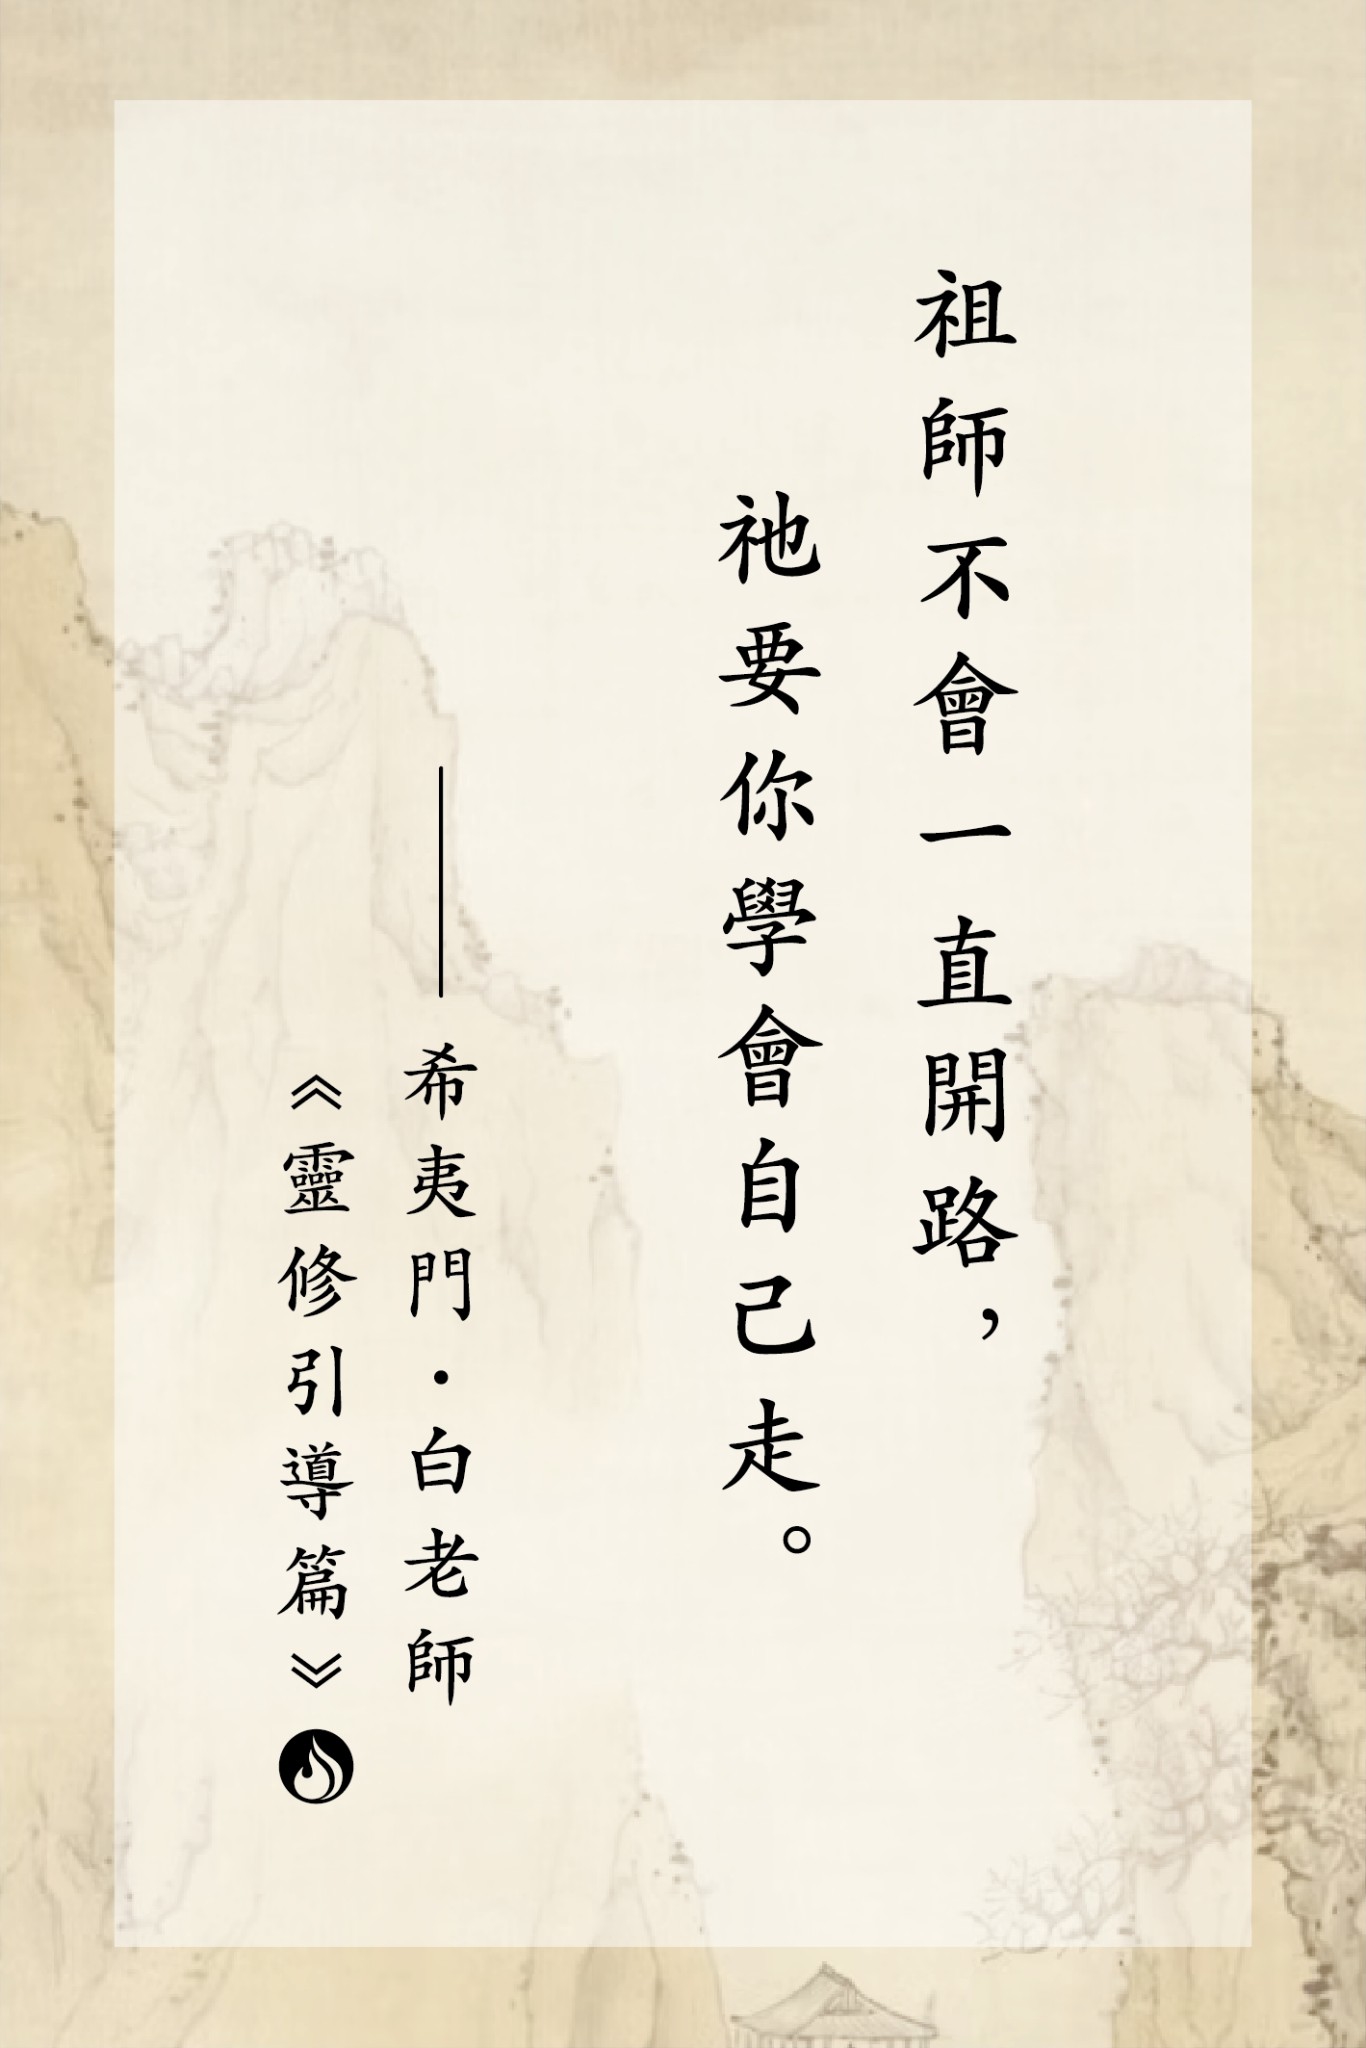 祖師不會一直開路，
祂要你學會自己走。
——希夷門・白老師
《靈修引導篇》